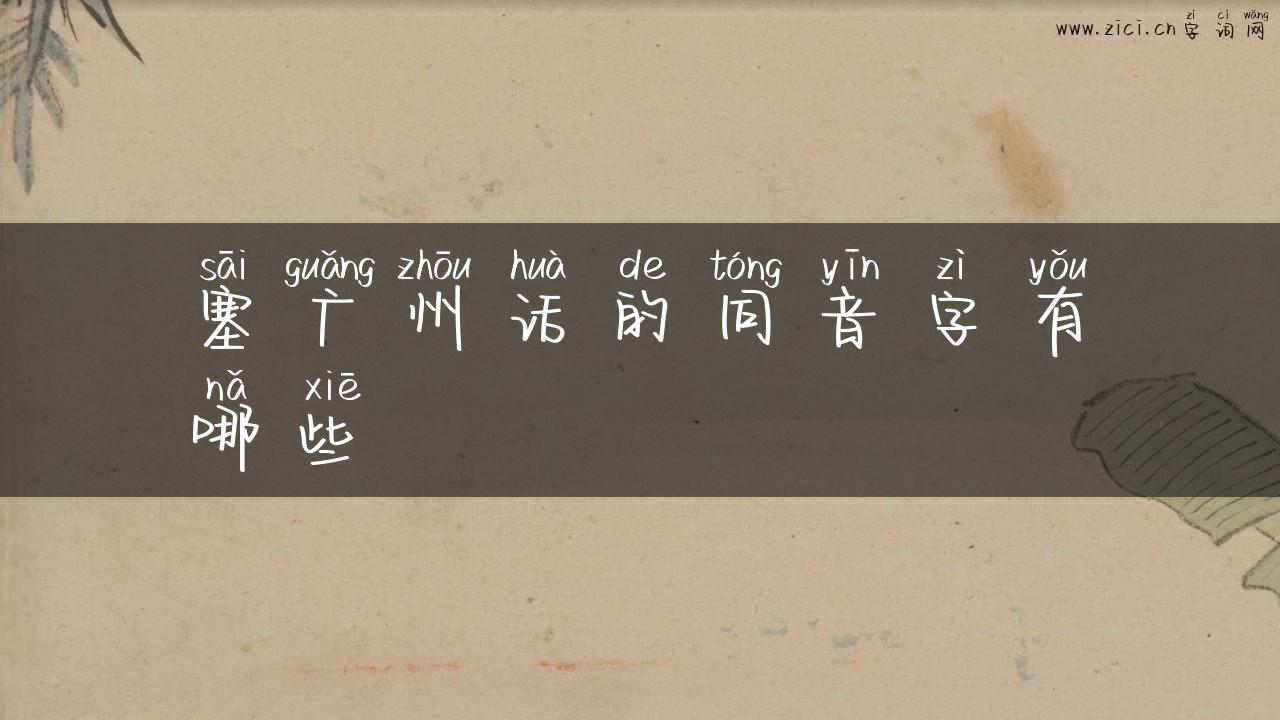 zì cí wǎng
www.zici.cn 字词网
sāi guǎng zhōu huà de tóng yīn zì yǒu
塞广州话的同音字有
nǎ xiē
哪些